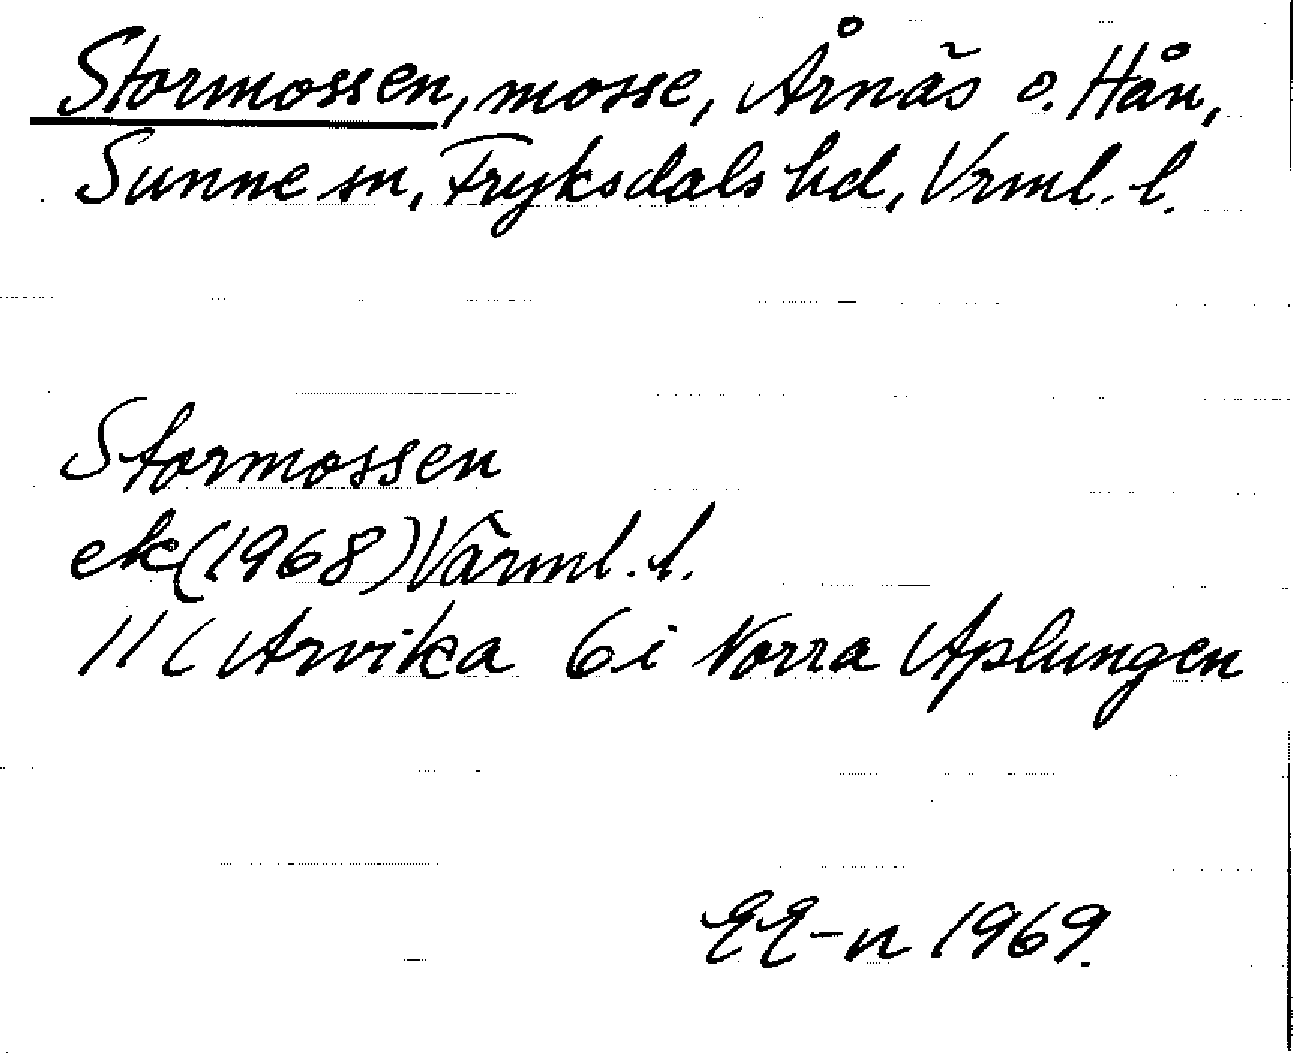 Stormossen, mosse, Årnäs o. Hån,
Sunne sn, Fryksdals hd, Vrml. l.
Stormossen
ek (1968) Värml. l.
11 C Arvika 6 i Norra Aplungen
EE-n 1969.